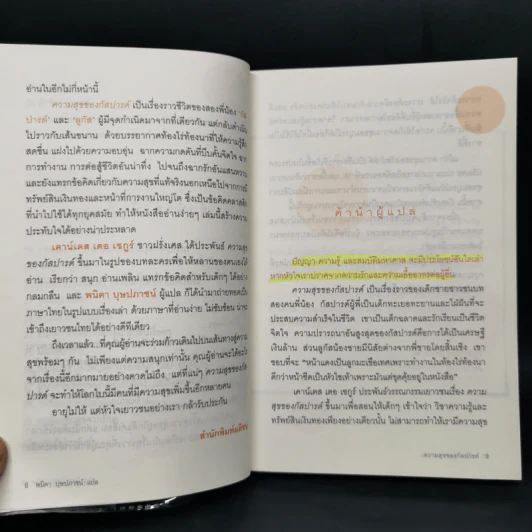 อ่านในอีกไม่กี่หน้านี้
ความสุขของกัสปารด์ เป็นเรื่องราวชีวิตของสองพี่น้อง "กัส
ปารด์" และ "ลูกัส" ผู้มีจุดกำเนิดมาจากที่เดียวกัน แต่กลับดำเนิน
ไปราวกับเส้นขนาน ด้วยบรรยากาศท้องไร่ท้องนาที่ให้ความรู้สึก
สดชื่น แฝงไปด้วยความอบอุ่น ฉากความกดดันที่บีบคั้นจิตใจ ฉาก
การทำงาน การต่อสู้ชีวิตอันน่าทึ่ง ไปจนถึงฉากรักอันแสนหวาน
และยังแทรกข้อคิดเกี่ยวกับความสุขที่แท้จริงนอกเหนือไปจากการมี
ทรัพย์สินเงินทองและหน้าที่การงานใหญ่โต ซึ่งเป็นข้อคิดคลาสสิค
ที่นำไปใช้ได้ทุกยุคสมัย ทำให้หนังสืออ่านง่ายๆ เล่มนี้สร้างความ
ประทับใจได้อย่างน่าประหลาด
เคาน์เตส เดอ เซกูร์ ชาวฝรั่งเศส ได้ประพันธ์ ความสุข
ของกัสปารด์ ขึ้นมาในรูปของบทละครเพื่อให้หลานของเธอ
อ่าน เรียกว่า สนุก อ่านเพลิน แทรกข้อคิดสำหรับเด็กๆ ได้อย่าง
กลมกลืน และ พนิดา บุษปภาชน์ ผู้แปล ก็ได้นำมาถ่ายทอดเป็น
ภาษาไทยในรูปแบบเรื่องเล่า ด้วยภาษาที่อ่านง่าย ไม่ซับซ้อน น่าจะ
เข้าถึงเยาวชนไทยได้อย่างดีทีเดียว
ถึงเวลาแล้ว...ที่คุณผู้อ่านจะร่วมก้าวเดินไปบนเส้นทางสู่ความ
สุขพร้อมๆ กัน ไม่เพียงแต่ความสนุกเท่านั้น คุณผู้อ่านจะได้อะไร
จากเรื่องนี้อีกมากมายอย่างคาดไม่ถึง แต่ที่แน่ๆ ความสุขของกัส
ปารด์ จะทำให้โลกใบนี้มีคนที่มีความสุขเพิ่มขึ้นอีกหลายคน
อายุไม่ให้ แต่หัวใจเยาวชนอย่างเรา กล้ารับประกัน
สำนักพิมพ์มติชน
8 พนิดา บุษปภาชน์ แปล
คำนำผู้แปล
ปัญญา ความรู้ และสมบัติมหาศาล จะมีประโยชน์อันใดเล่า
หากหัวใจเราปราศจากความรักและความเอื้ออาทรต่อผู้อื่น
ความสุขของกัสปารด์ เป็นเรื่องราวของเด็กชายชาวชนบท
สองคนพี่น้อง กัสปารด์ผู้พี่เป็นเด็กทะเยอทะยานและใฝ่ฝันที่จะ
ประสบความสำเร็จในชีวิต เขาเป็นเด็กฉลาดและรักเรียนเป็นชีวิต
จิตใจ ความปรารถนาอันสูงสุดของกัสปารด์คือการได้เป็นเศรษฐี
เงินล้าน ส่วนลูกัสน้องชายมีนิสัยต่างจากพี่ชายโดยสิ้นเชิง เขา
ชอบที่จะ "หน้าแดงเป็นลูกมะเขือเทศเพราะทำงานในท้องไร่ท้องนา
ดีกว่าหน้าซีดเป็นหัวไชเท้าเพราะมัวแต่ขุดคุ้ยอยู่ในหนังสือ"
เคาน์เตส เดอ เซกูร์ ประพันธ์วรรณกรรมเยาวชนเรื่อง ความ
สุขของกัสปารด์ ขึ้นมาเพื่อสอนให้เด็กๆ เข้าใจว่า วิชาความรู้และ
ทรัพย์สินเงินทองเพียงอย่างเดียวนั้น ไม่สามารถทำให้เรามีความสุข
ความสุขของกัสปารด์ 9